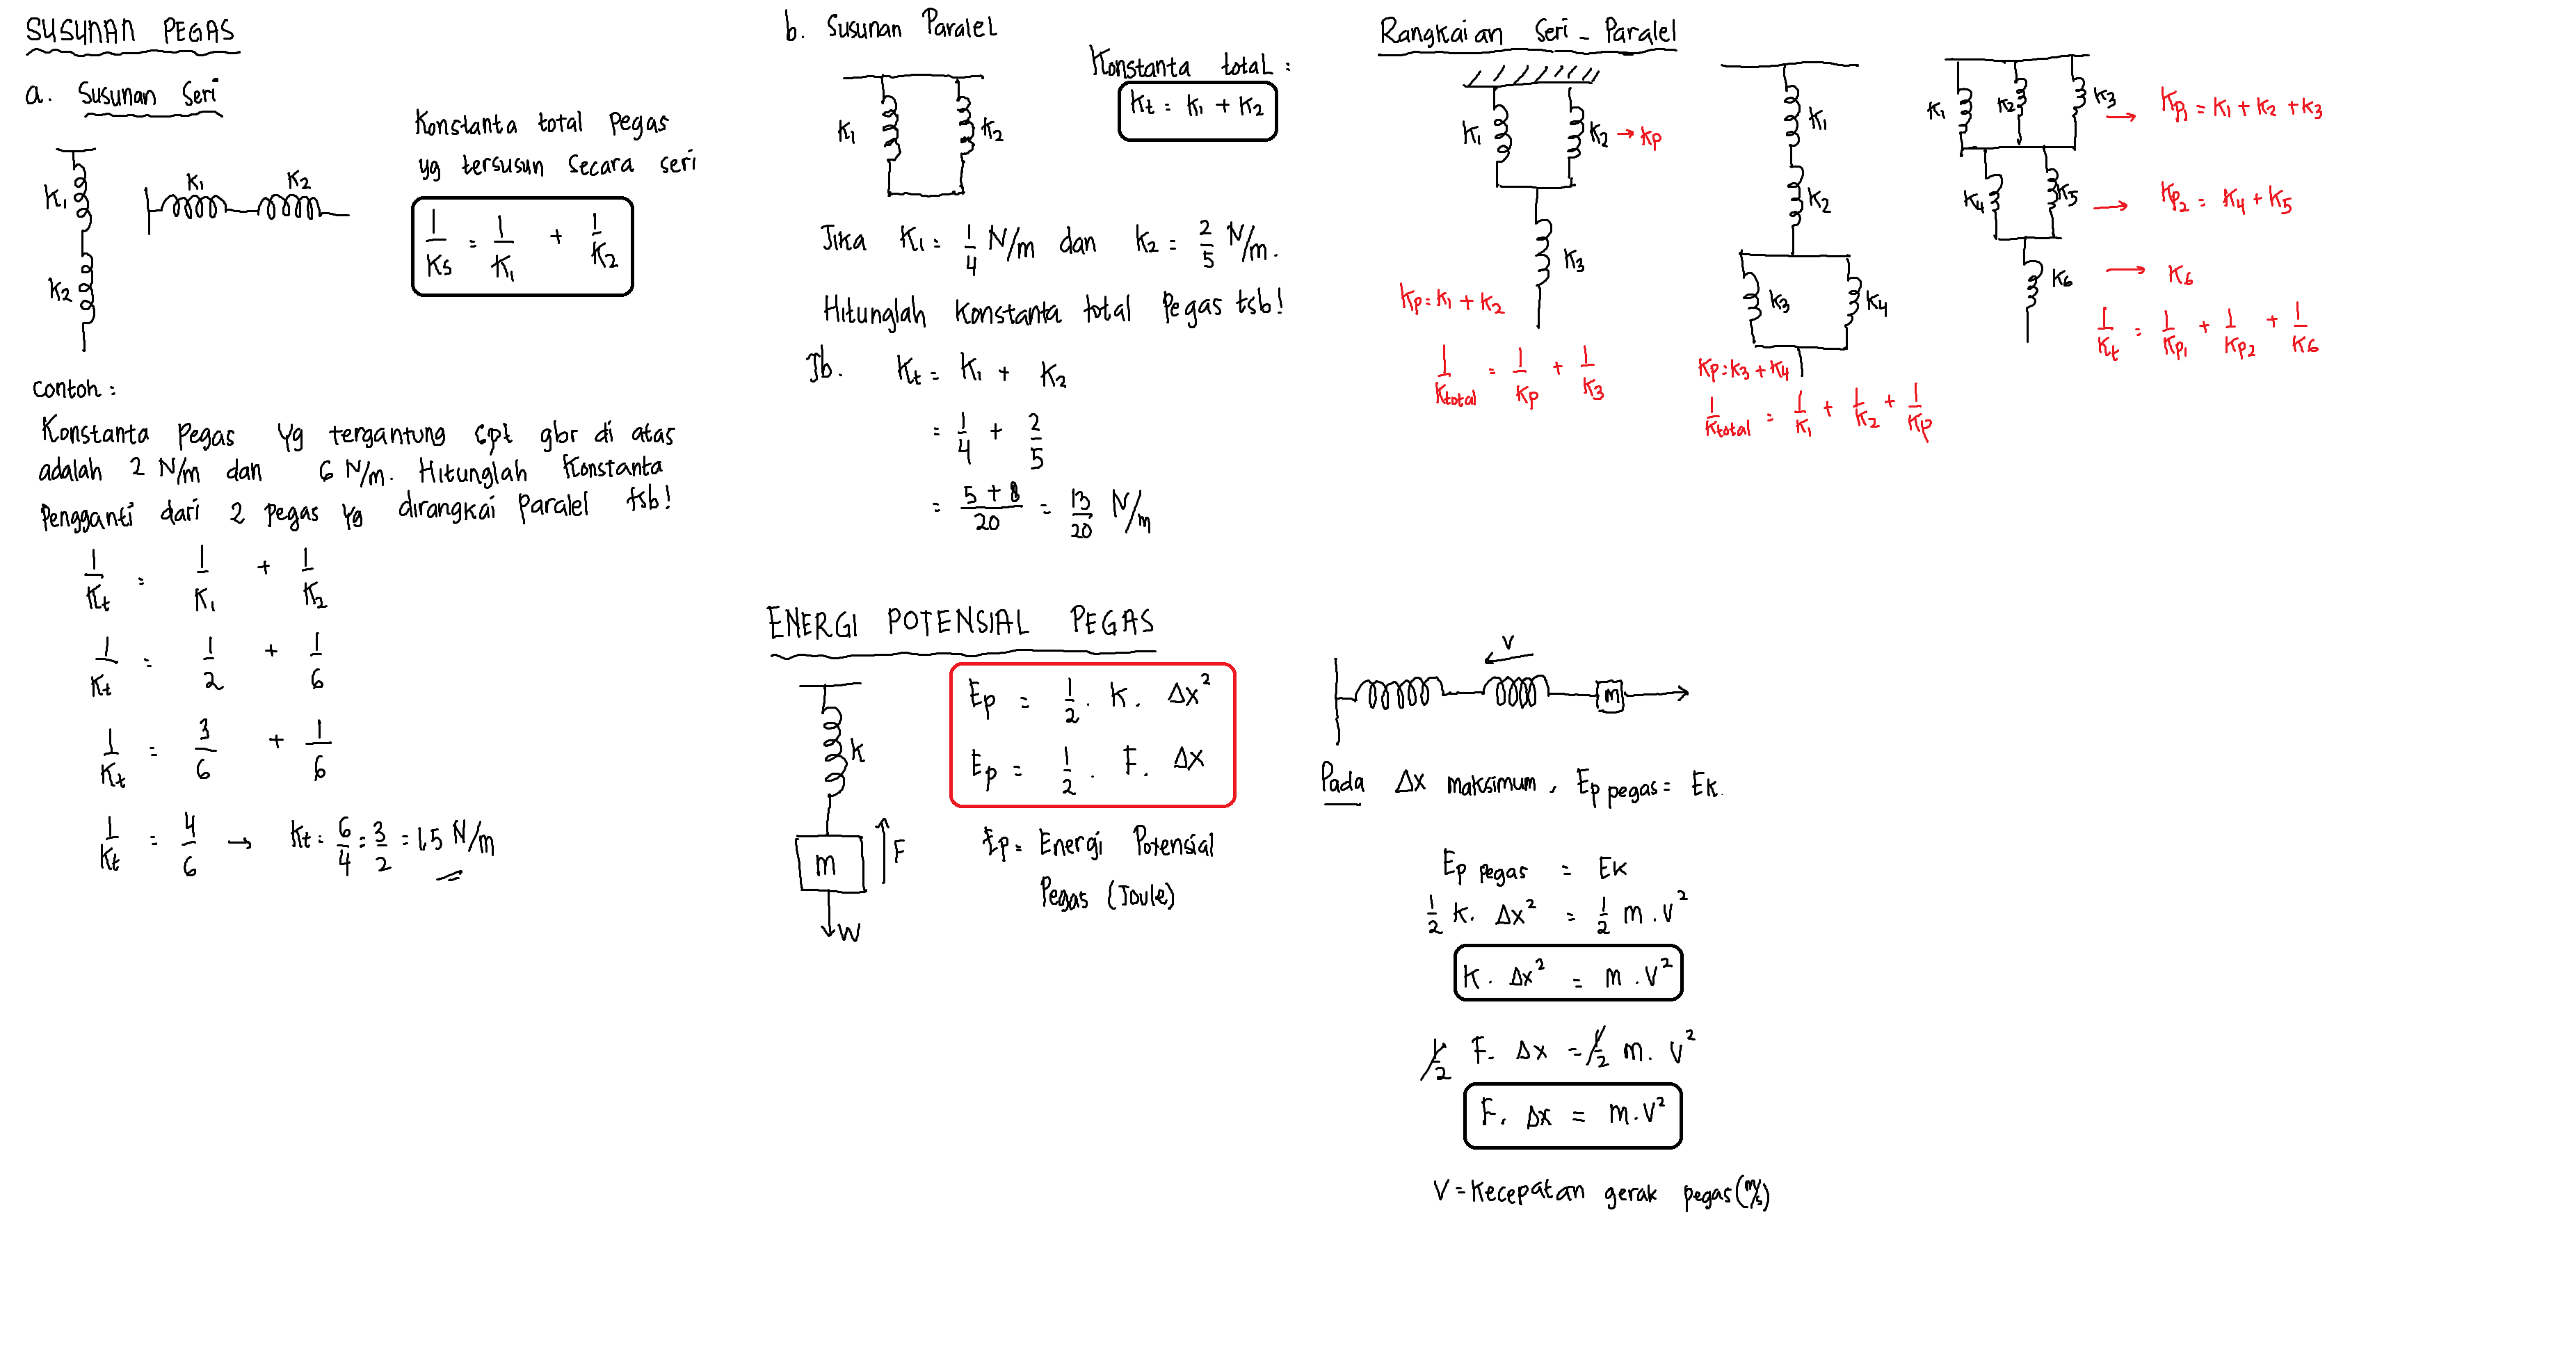 SUSUNAN PEGAS
a. Susunan Seri
K1
K2
K1 K2
Konstanta total pegas
yg tersusun secara seri
1/Ks = 1/K1 + 1/K2
Contoh :
Konstanta pegas yg tergantung spt gbr di atas
adalah 2 N/m dan 6 N/m. Hitunglah Konstanta
Pengganti dari 2 pegas yg dirangkai Paralel tsb!
1/Kt = 1/K1 + 1/K2
1/Kt = 1/2 + 1/6
1/Kt = 3/6 + 1/6
1/Kt = 4/6 → Kt = 6/4 = 3/2 = 1,5 N/m
b. Susunan Paralel
K1 K2
Konstanta total :
Kt = K1 + K2
Jika K1 = 1/4 N/m dan K2 = 2/5 N/m.
Hitunglah Konstanta total Pegas tsb!
Jb. Kt = K1 + K2
= 1/4 + 2/5
= 5 + 8/20 = 13/20 N/m
Rangkaian Seri - Paralel
K1 K2 → Kp
K3
Kp = K1 + K2
1/Ktotal = 1/Kp + 1/K3
K1
K2
K3 K4
Kp = K3 + K4
1/Ktotal = 1/K1 + 1/K2 + 1/Kp
K1 K2 K3 → Kp1 = K1 + K2 + K3
K4 K5 → Kp2 = K4 + K5
K6 → K6
1/Kt = 1/Kp1 + 1/Kp2 + 1/K6
ENERGI POTENSIAL PEGAS
k
m
F
W
Ep = 1/2 . K . Δx²
Ep = 1/2 . F . Δx
Ep = Energi Potensial
Pegas (Joule)
V
m
Pada Δx maksimum, Ep pegas = Ek.
Ep pegas = Ek
1/2 K . Δx² = 1/2 m . V²
K . Δx² = m . V²
1/2 F . Δx = 1/2 m . V²
F . Δx = m . V²
V = Kecepatan gerak pegas (m/s)